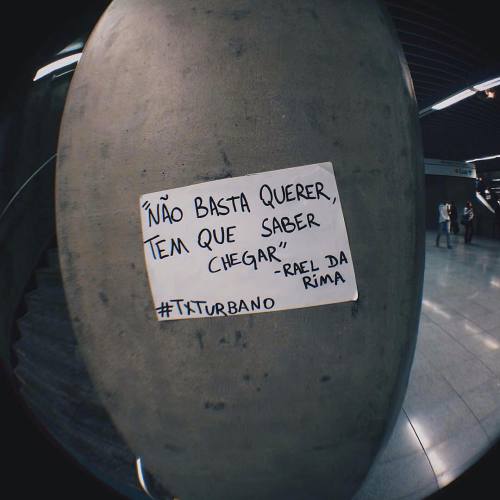 "NÃO BASTA QUERER,
TEM QUE SABER
CHEGAR"
-RAEL DA
RIMA
#TXTURBANO